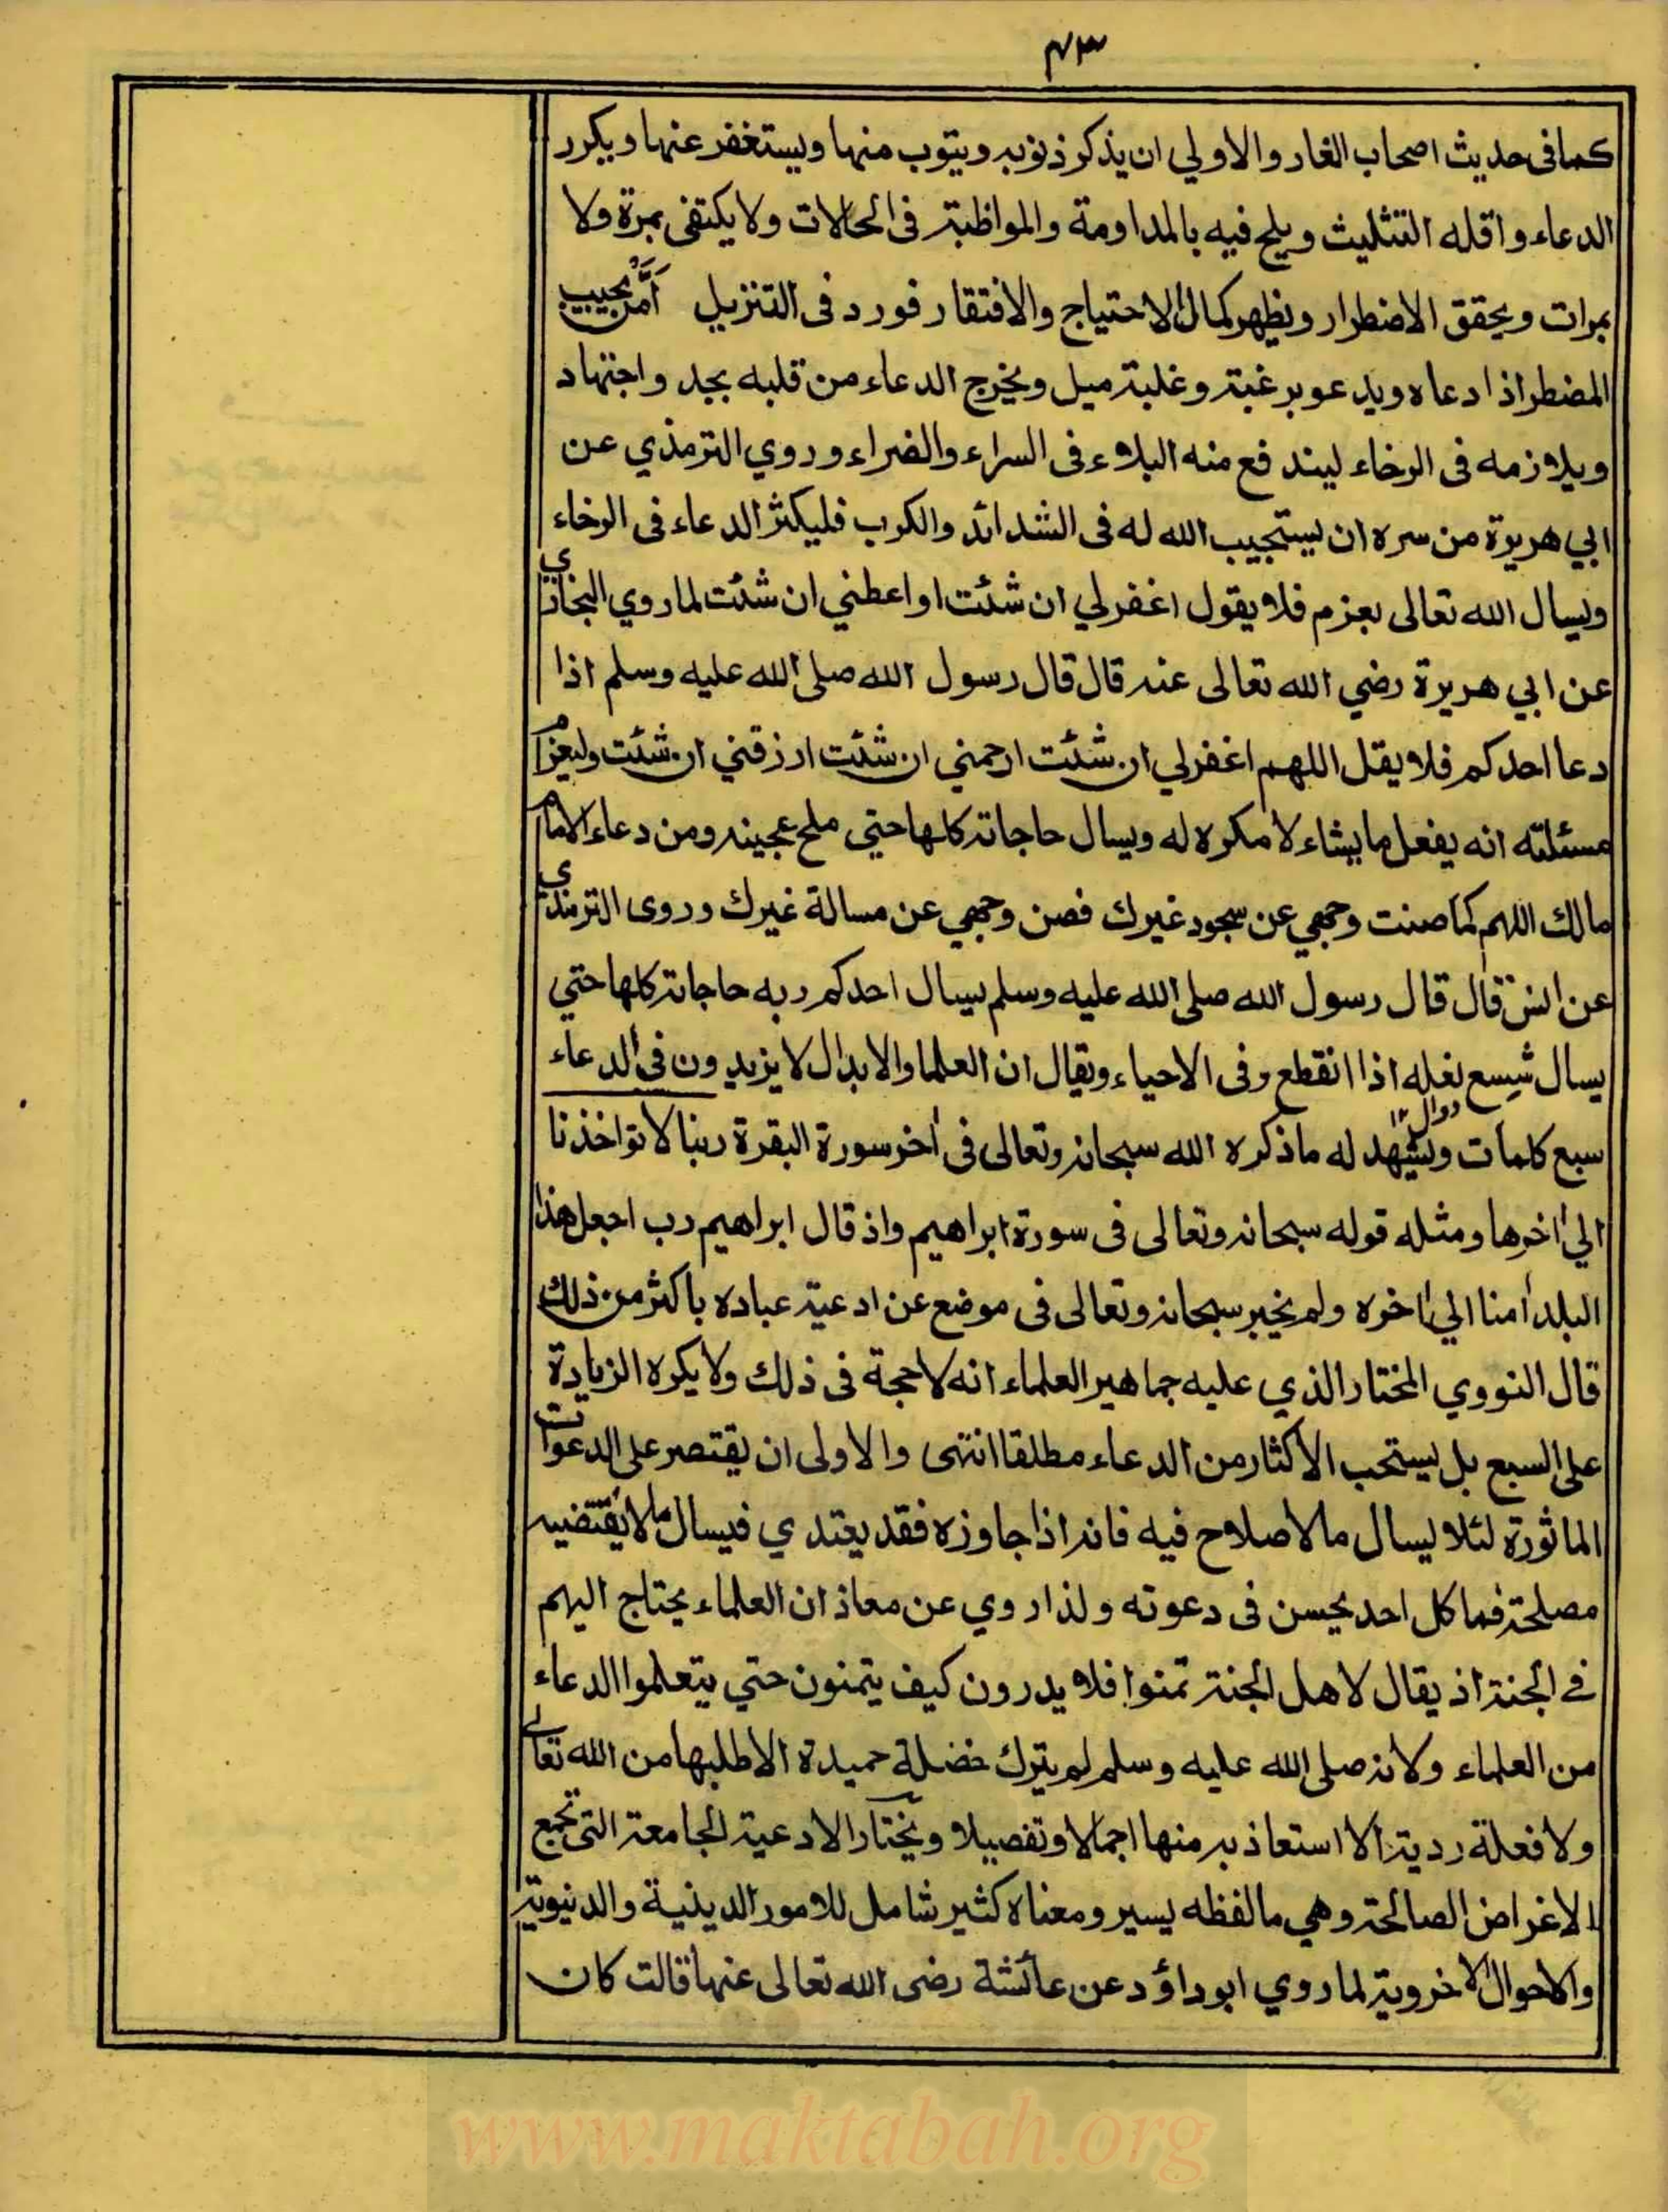 ٤٣
كما فى حديث اصحاب الغار والاولي ان يذكر ذنوبه ويتوب منها ويستغفر عنها ويكرر
الدعاء واقله التثليث ويلح فيه بالمداومة والمواظبة فى الحالات ولا يكتفى بمرة ولا
بمرات ويحقق الاضطرار ويظهر كمال الاحتياج والافتقار فورد فى التنزيل اَمَّنْ يجيب
المضطر اذا دعاه ويدعو برغبة وغلبة ميل ويخرج الدعاء من قلبه بجد واجتهاد
ويلازمه فى الرخاء ليندفع منه البلاء فى السراء والضراء وروي الترمذي عن
ابي هريرة من سره ان يستجيب الله له فى الشدائد والكرب فليكثر الدعاء فى الرخاء
ويسال الله تعالى بعزم فلا يقول اغفرلي ان شئت او اعطني ان شئت لما روي البخاري
عن ابي هريرة رضي الله تعالى عنه قال قال رسول الله صلى الله عليه وسلم اذا
دعا احدكم فلا يقل اللهم اغفرلي ان شئت ارحمني ان شئت ارزقني ان شئت وليعزم
مسئلته انه يفعل ما يشاء لا مكره له ويسال حاجاته كلها حتي ملح عجينه ومن دعاء الامام
مالك اللهم كما صنت وجهي عن سجود غيرك فصن وجهي عن مسالة غيرك وروى الترمذي
عن انس قال قال رسول الله صلى الله عليه وسلم يسال احدكم ربه حاجاته كلها حتي
يسال شسع نعله اذا انقطع وفى الاحياء ويقال ان العلما والابدال لا يزيدون فى الدعاء
دوال ١٢
سبع كلمات ويشهد له ما ذكره الله سبحانه وتعالى فى اخر سورة البقرة ربنا لا تواخذنا
الي اخرها ومثله قوله سبحانه وتعالى فى سورة ابراهيم واذ قال ابراهيم رب اجعل هذا
البلد امنا الي اخره ولم يخبر سبحانه وتعالى فى موضع عن ادعية عباده باكثر من ذلك
قال النووي المختار الذي عليه جماهير العلماء انه لا حجة فى ذلك ولا يكره الزيادة
على السبع بل يستحب الاكثار من الدعاء مطلقا انتهى والاولى ان يقتصر على الدعوات
الماثورة لئلا يسال ما لا صلاح فيه فانه اذا جاوزه فقد يعتدي فيسال ما لا يقتضيه
مصلحة فما كل احد يحسن فى دعوته ولذا روي عن معاذ ان العلماء يحتاج اليهم
في الجنة اذ يقال لاهل الجنة تمنوا فلا يدرون كيف يتمنون حتي يتعلموا الدعاء
من العلماء ولانه صلى الله عليه وسلم لم يترك خضلة حميدة الا طلبها من الله تعالى
ولا فعلة ردية الا استعاذ به منها اجمالا وتفصيلا ويختار الادعية الجامعة التى تجمع
الاغراض الصالحة وهي ما لفظه يسير ومعناه كثير شامل للامور الدينية والدنيوية
والاحوال الاخروية لما روي ابو داؤد عن عائشة رضى الله تعالى عنها قالت كان
www.maktabah.org